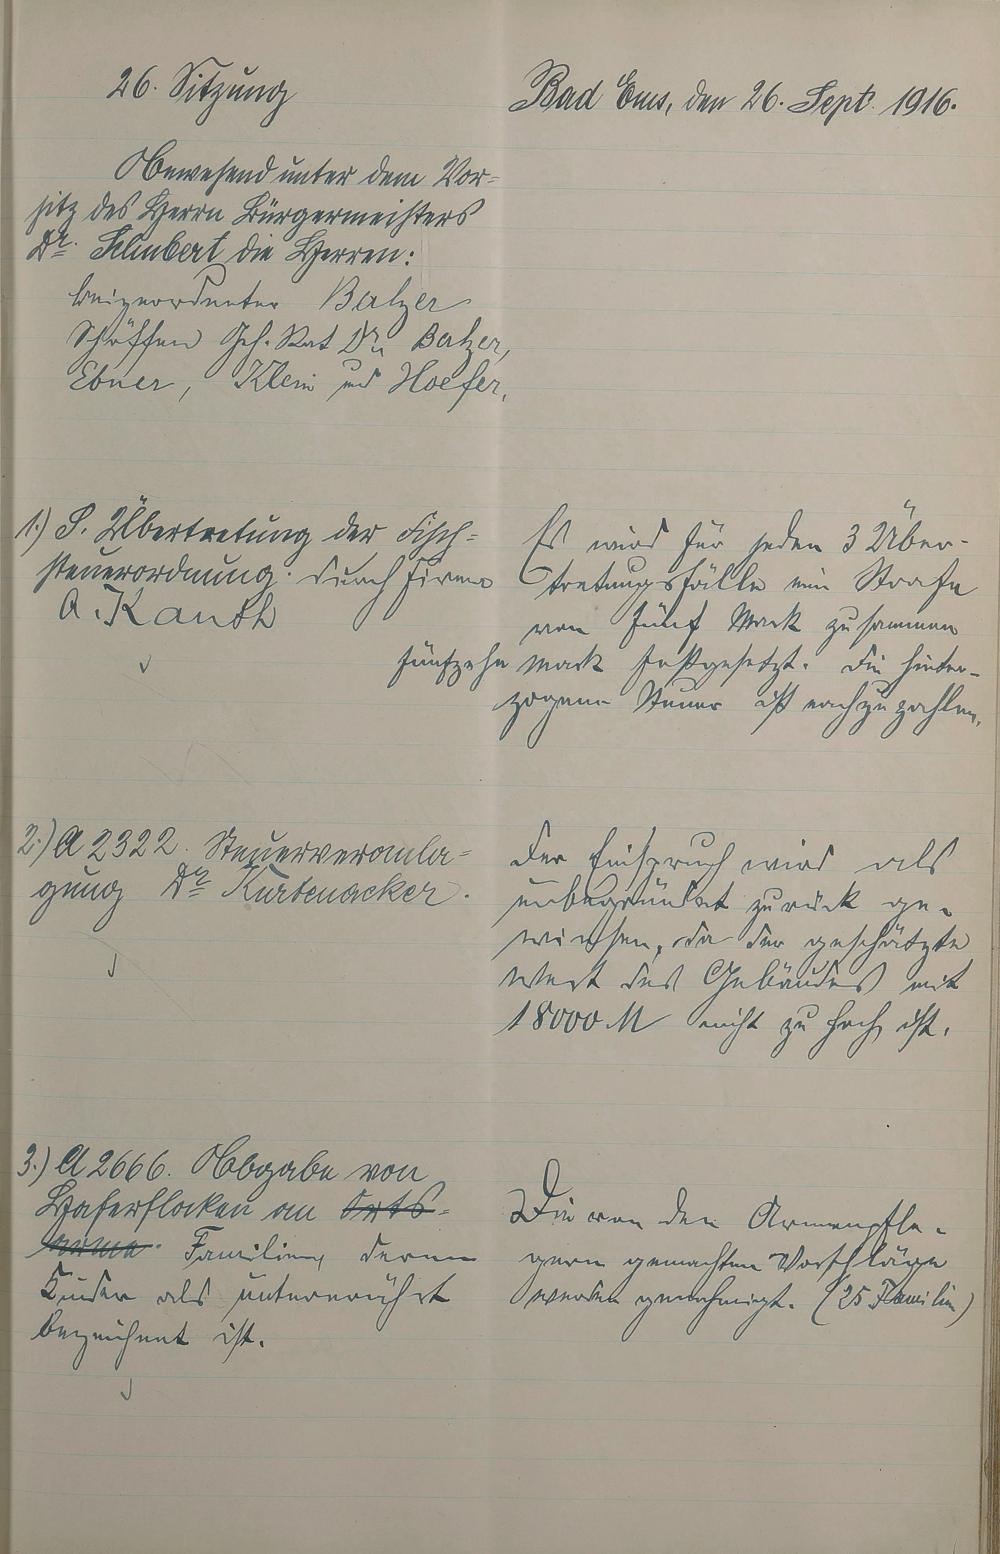 26. Sitzung
Bad Ems, den 26. Sept. 1916.
Anwesend unter dem Vor-
sitz des Herrn Bürgermeisters
Dr. Schubert die Herren:
Beigeordneter Balzer
Schöffen Geh. Rat Dr. Balzer,
Ebner, Klein und Hoefer.
1.) S. Übertretung der Fisch-
steuerordnung durch Firma
A. Kauth
Es wird für jeden 3 Über-
tretungsfälle eine Strafe
von fünf Mark zusammen
fünfzehn Mark festgesetzt. Die hinter-
zogene Steuer ist nachzuzahlen.
2.) A 2322. Steuerveranla-
gung Dr. Kurtenacker.
Der Einspruch wird als
unbegründet zurück ge-
wiesen, da der geschätzte
Wert des Gebäudes mit
18000 M nicht zu hoch ist.
3.) A 2666. Abgabe von
Haferflocken an Orts-
arme. Familien, deren
Kinder als unterernährt
bezeichnet ist.
Die von den Armenpfle-
gern gemachten Vorschläge
werden genehmigt. (25 Familien)